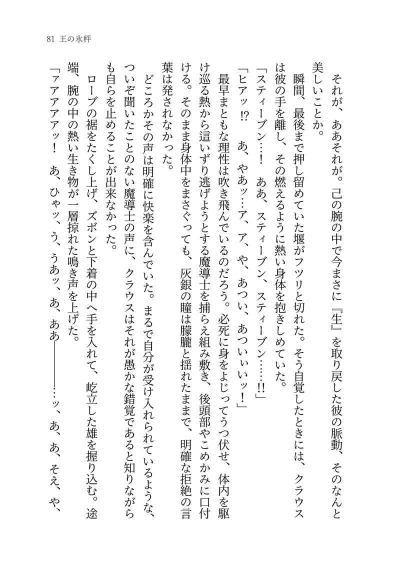 81　王の氷秤
　それが、ああそれが。己の腕の中で今まさに『生』を取り戻した彼の脈動、そのなんと
美しいことか。
　瞬間、最後まで押し留めていた堰がフツリと切れた。そう自覚したときには、クラウス
は彼の手を離し、その燃えるように熱い身体を抱きしめていた。
「スティーブン…！　ああ、スティーブン、スティーブン……!!」
「ヒアッ!?　あ、やあッ…ア、ア、や、あつい、あついぃいッ！」
　最早まともな理性は吹き飛んでいるのだろう。必死に身をよじってうつ伏せ、体内を駆
け巡る熱から這いずり逃げようとする魔導士を捕らえ組み敷き、後頭部やこめかみに口付
ける。そのまま身体中をまさぐっても、灰銀の瞳は朦朧と揺れたままで、明確な拒絶の言
葉は発されなかった。
　どころかその声は明確に快楽を含んでいた。まるで自分が受け入れられているような、
ついぞ聞いたことのない魔導士の声に、クラウスはそれが愚かな錯覚であると知りながら
も自らを止めることが出来なかった。
　ローブの裾をたくし上げ、ズボンと下着の中へ手を入れて、屹立した雄を握り込む。途
端、腕の中の熱い生き物が一層掠れた鳴き声を上げた。
「ァアアアアッ！　あ、ひゃッ、う、うあッ、あ、ああ――――ッ、あ、あ、そえ、や、